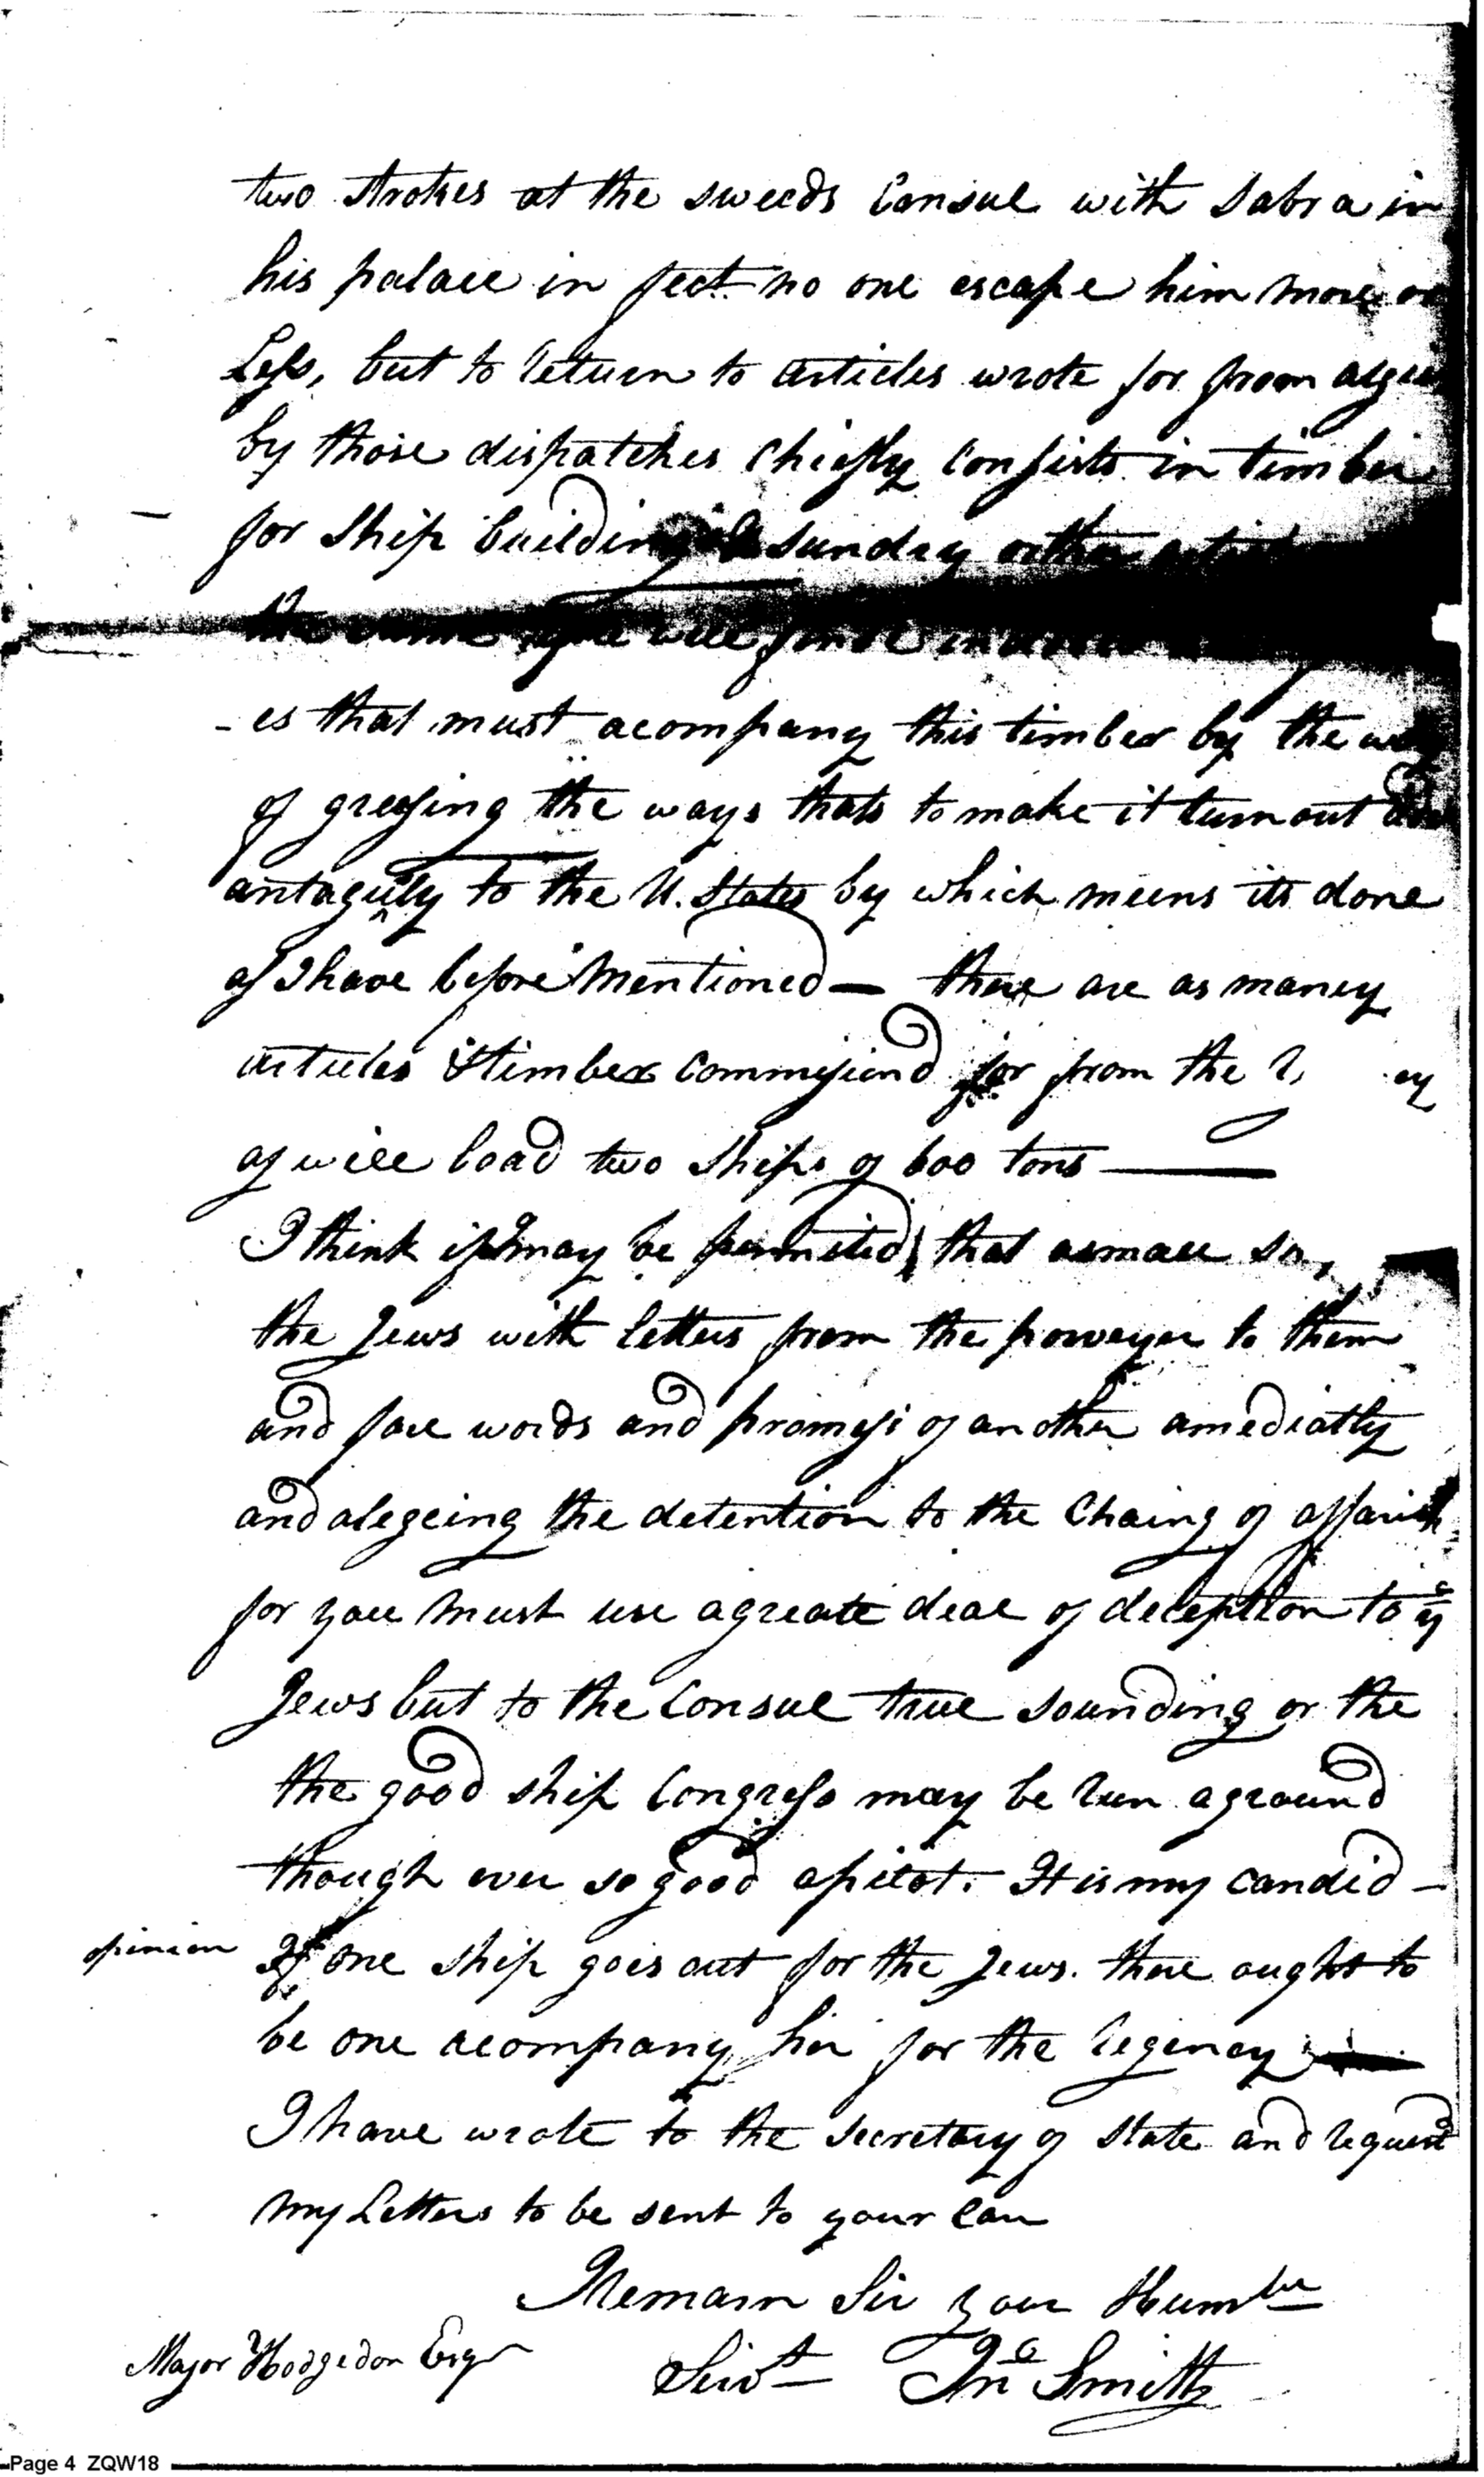 two strokes at the sweeds Consul with Sabra in
his palace in fect no one escape him more or
Less, but to return to articles wrote for from algie
by those dispatches chiefly Consists in timber
for Ship building sundry other
the you will find
-es that must acompany this timber by the way
of greesing the ways thats to make it turn out
antaguely to the U. States by which meens its done
as I have before Mentioned — there are as maney
articles & timber Commisiond for from the
as will load two Ships of 600 tons —
I think if I may be permited that a small
the Jews with letters from the to them
and fare words and promess of another amediatly
and alegeing the detention to the Chaing of affairs
for you must use a greate deal of deception to ye
Jews but to the Consul true sounding or the
the good ship Congress may be run aground
though ever so good a pilot. It is my candid –
opinion If one ship goes out for the Jews. there ought to
be one acompany her for the regency —
I have wrote to the secretary of state and request
my Letters to be sent to your Care
I Remain Sir your Humble
Major Hodgedon Esqr Servt Jno Smith
Page 4 ZQW18